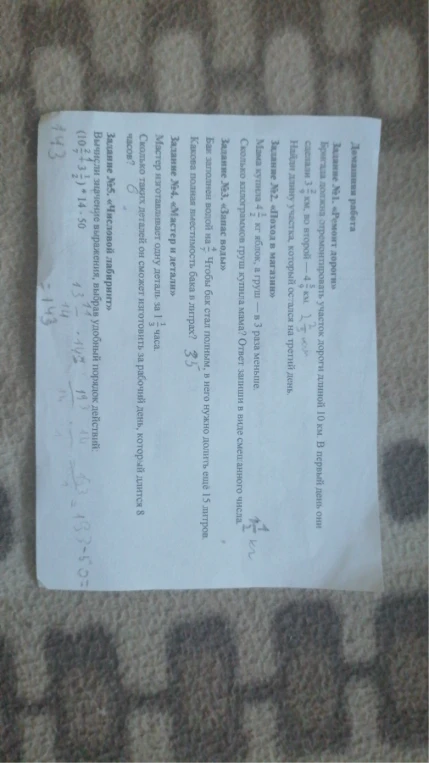 Домашняя работа
Задание №1. «Ремонт дороги»
Бригада должна отремонтировать участок дороги длиной 10 км. В первый день они
сделали 3 2/9 км, во второй — 4 5/9 км.
Найди длину участка, который остался на третий день.
Задание №2. «Поход в магазин»
Мама купила 4 1/2 кг яблок, а груш — в 3 раза меньше.
Сколько килограммов груш купила мама? Ответ запиши в виде смешанного числа.
Задание №3. «Запас воды»
Бак заполнен водой на 4/7. Чтобы бак стал полным, в него нужно долить ещё 15 литров.
Какова полная вместимость бака в литрах? 35
Задание №4. «Мастер и детали»
Мастер изготавливает одну деталь за 1 1/3 часа.
Сколько таких деталей он сможет изготовить за рабочий день, который длится 8
часов? 6
Задание №5. «Числовой лабиринт»
Вычисли значение выражения, выбрав удобный порядок действий:
(10 2/7 + 3 1/2) * 14 - 50
= 143
143